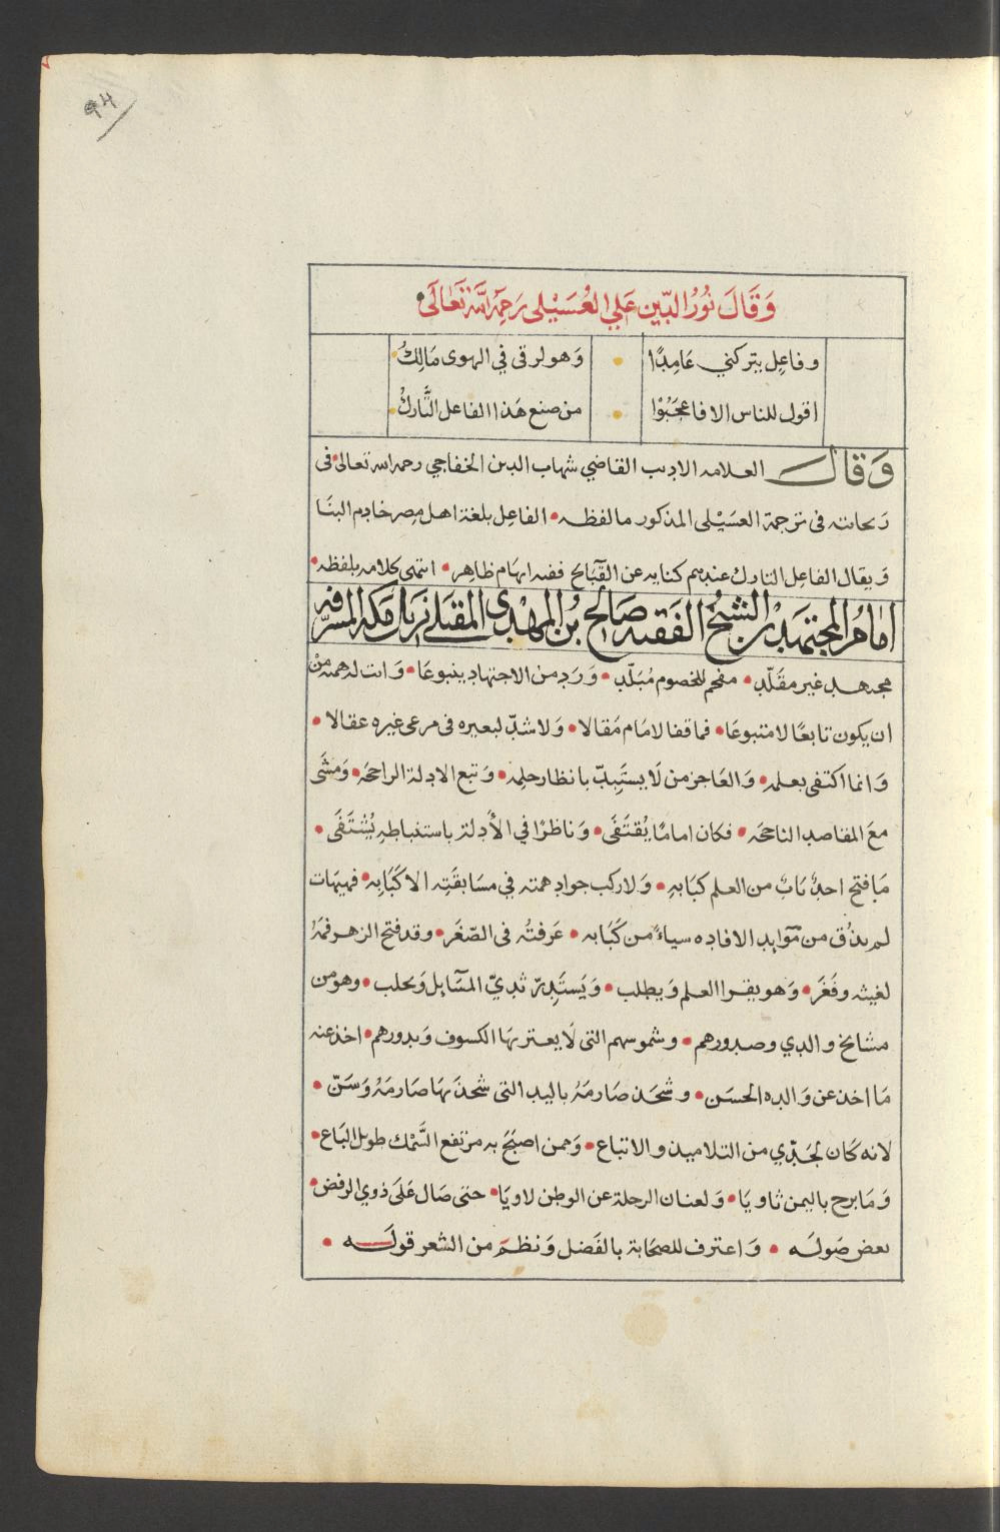 ٩٤
وَقَالَ نُورُ الدِّين عَلِي العُسَيْلى رَحِمَهُ اللَّه تَعَالَى
وفاعِل يتركني عَامِدًا • وَهو لرقى في الهوى مَالِكُ
اقول للناس الا فاعجَبُوْا • من صنع هَذا الفاعل التَّارِكُ
وَقال العلامه الاديب القاضي شهاب الدين الخفاجي رحمه الله تعالى في
رَيحانته فى ترجمة العسَيْلى المذكور ما لفظه • الفاعِل بلغة اهل مِصر خادم البنَا
وَيقال الفاعِل التارك عندهم كنايه عن القبَايح ففيه ايهَام ظاهِر • انتهى كلامه بلفظه •
امَامُ المجتهدين الشيخ الفَقيه صَالِح بن المهْدى المقبَلى نزيل مَكه المشرفه
مجتهد غير مقَلِّد • مفحم للخصوم مُبَلِّد • وَرَدِ من الاجتهاد ينبوعَا • وَابت له همته مِنْ
ان يكون تابعًا لا متبوعَا • فما قفا لامَام مَقالا • وَلا شدّ لبعيره فى مرعى غيره عقالا •
وَانما اكتفى بعلمه • وَالعَاجز من لَا يستَبِدّ بانظار حلمِه • وَتبع الادلة الراجحَه • وَمشَى
معَ المقاصد الناجحَه • فكان امامًا يُقتَفَى • وَناظرْا في الأدلة باستنباطِهِ يُشْتَفَى •
مَا فتح احدٌ بَابٌ من العلم كبَابهِ • وَلا ركب جواد همته في مسَابقَتِه الا كَبَابِه • فهيهَات
لم يذُق من مَوَايد الافاده سياءً من كَبَابه • عَرفتُه فى الصّغَر • وقد فتح الزهر فمَهُ
لغيثه وفَغَرَ • وَهو يقرا العلم وَيطلب • وَيَستَدِرّ ثديّ المسَايل وَيحلب • وهو من
مشايخ والدي وصدورهم • وشموسهم التى لَا يعتريهَا الكسوف وَبدورهم • اخذ عنه
مَا اخذ عن وَالده الحسَن • وشحَذ صَارمَهُ باليد التى شحذَ بهَا صَارمَهُ وَسَنّ •
لانه كَان لجَدّي من التلاميذ والاتباع • وَممن اصبَحَ به مرتفع السَّمك طويل البَاع •
وَمَا برح باليمن ثاويَا • وَلعنان الرحلة عن الوطن لاويَا • حتى صَال عَلَى ذوي الرفض •
بعض صَولَه • وَاعترف للصحَابة بالفَضل وَنظمَ من الشعر قولَـــه •